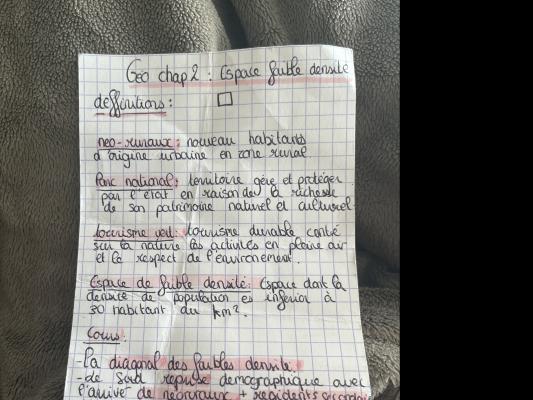 Géo chap 2 : Espace faible densité
deffinitions :
neo-ruraux : nouveau habitants
d'origine urbaine en zone rural
Parc national : territoire gére et protéger
par l'état en raison de la richesse
de son patrimoine naturel et culturel
tourisme vert : tourisme durable centré
sur la nature les activités en pleine air
et le respect de l'environement.
Espace de faible densité : Espace dont la
densité de population es inférior à
30 habitant du km².
Cours :
-La diagonal des faibles densité.
-de Sud reprise demographique avec
l'arrivé de néoruraux + residents secondaire